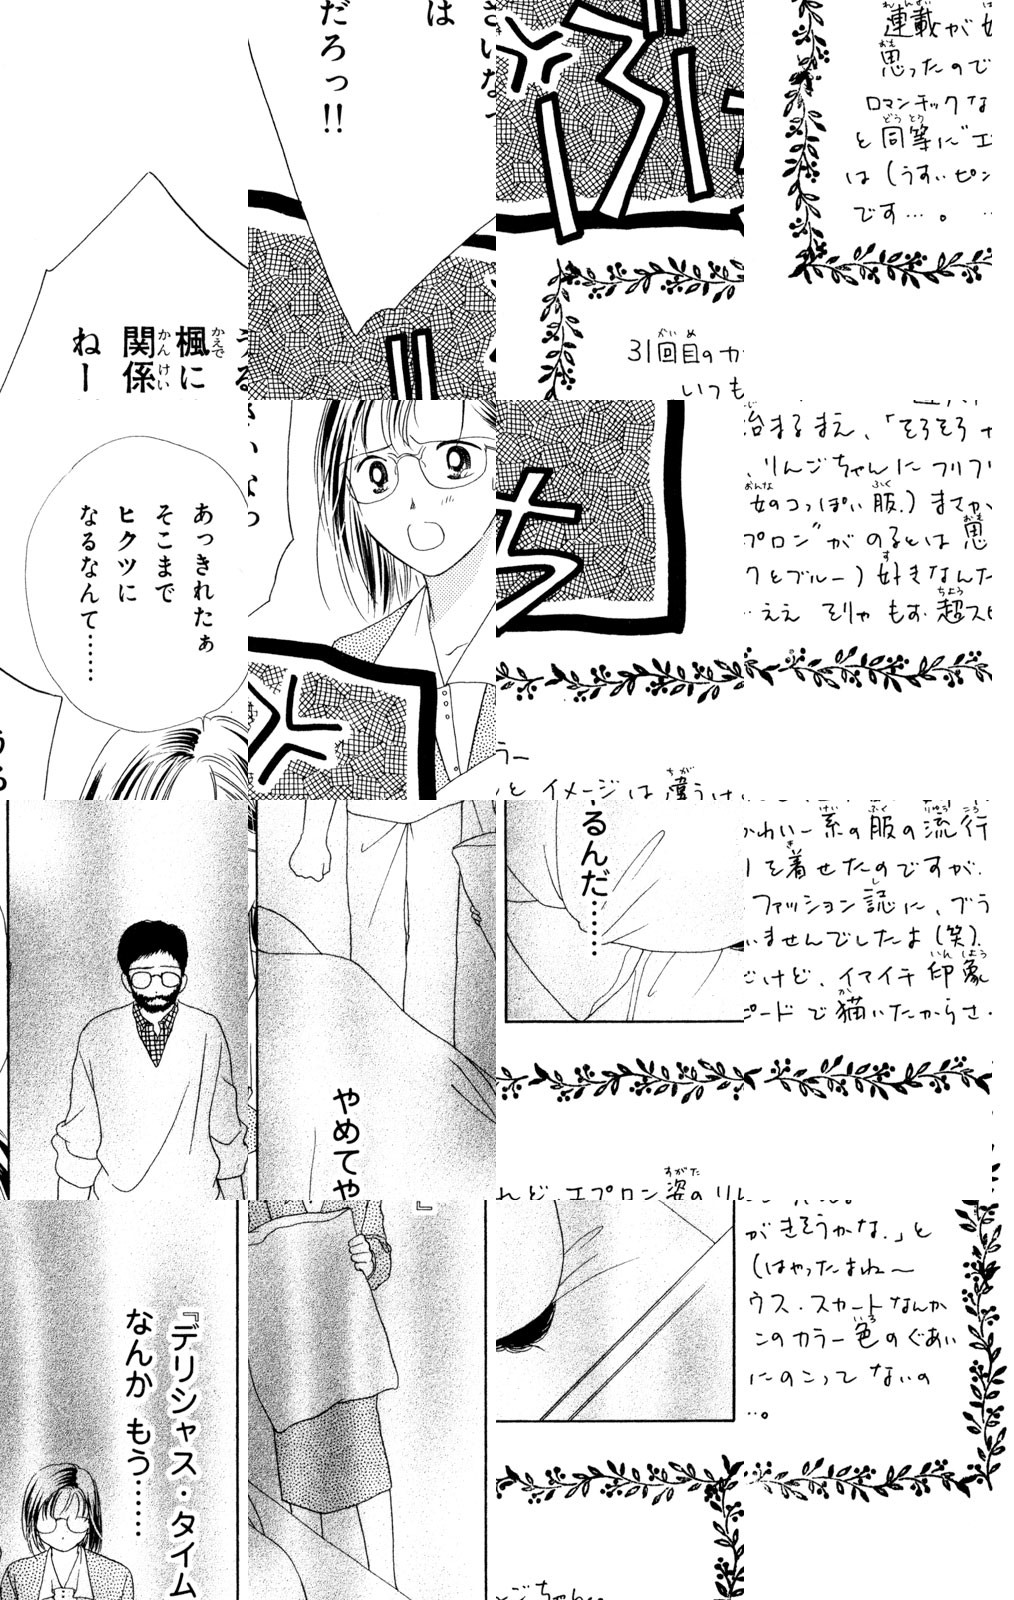 だろっ!!
さいなっ
は
うるさいなっ
楓に
関係
ねー
ぶち
あっきれたぁ
そこまで
ヒクツに
なるなんて……
連載が
思ったので
ロマンチックな
と同等に"エ
は(うすいピン
です…。
31回目のカ
いつも
始まるまえ、「そろそろ
、りんごちゃんにフリフリ
女のコっぽい服。)まで
プロン"がのるとは思
クとブルー)好きなんた
…ええ そりゃ もお 超スピ
ラー
とイメージは違うけ
かわいー系の服の流行
を着せたのですが
ファッション誌に、ブラ
いませんでしたよ(笑)
だけど、イマイチ印象
ピードで描いたからさ
るんだ……
やめてや
れど、エプロン姿のりん
がきそうかな。」と
(はやったよね〜
ウス・スカートなんか
このカラー色のぐあい
にのこってないの
…。
』
『デリシャス・タイム
なんか もう……
ごちゃん。